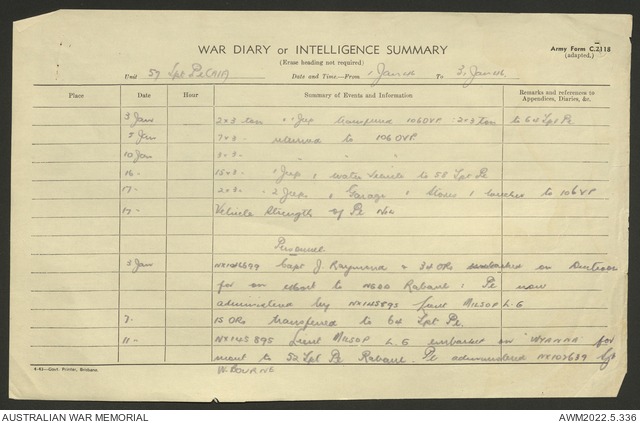 WAR DIARY or INTELLIGENCE SUMMARY
Army Form C.2118
(adapted.)
(Erase heading not required)
Unit 57 Tpt Pl (AIF) Date and Time—From 1 Jan To 31 Jan
Place Date Hour Summary of Events and Information Remarks and references to Appendices, Diaries, &c.
3 Jan 2 x 3 ton 1 Jeep transferred 106 OVP : 2 x 3 ton to 64 Tpt Pl
5 Jan 7 x 3 - returned to 106 OVP.
10 Jan 3 x 3 - " " "
16 - 15 x 3 - 1 Jeep 1 water to 58 Tpt Pl
17 - 2 x 3 - 2 Jeep 1 Garage 1 Stores 1 to 106 VP
17 - Vehicle Strength of Pl Nil
Personnel
3 Jan Capt J. Raymond + 34 ORs embarked on
for to Rabaul : Pl now
administered by NX145895 Lieut MILSOP L.G
7 - 15 ORs transferred to 64 Tpt Pl.
11 - NX145895 Lieut MILSOP L.G embarked on for
to 52 Tpt Pl Rabaul. Pl administered NX107639 Sgt
W. BOURNE
4-43—Govt. Printer, Brisbane.
AUSTRALIAN WAR MEMORIAL AWM2022.5.336